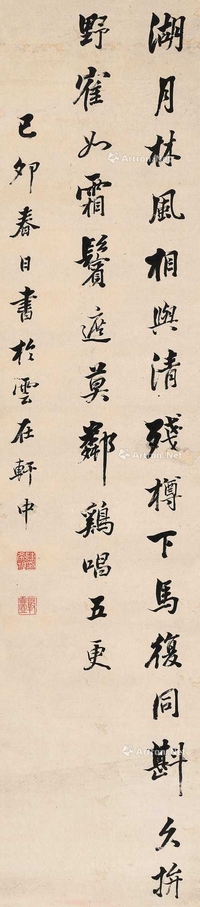 湖月林風相與清殘樽下馬復同斟久拚
野雀如霜鬢遮莫鄰鷄唱五更
己卯春日書於雲在軒中